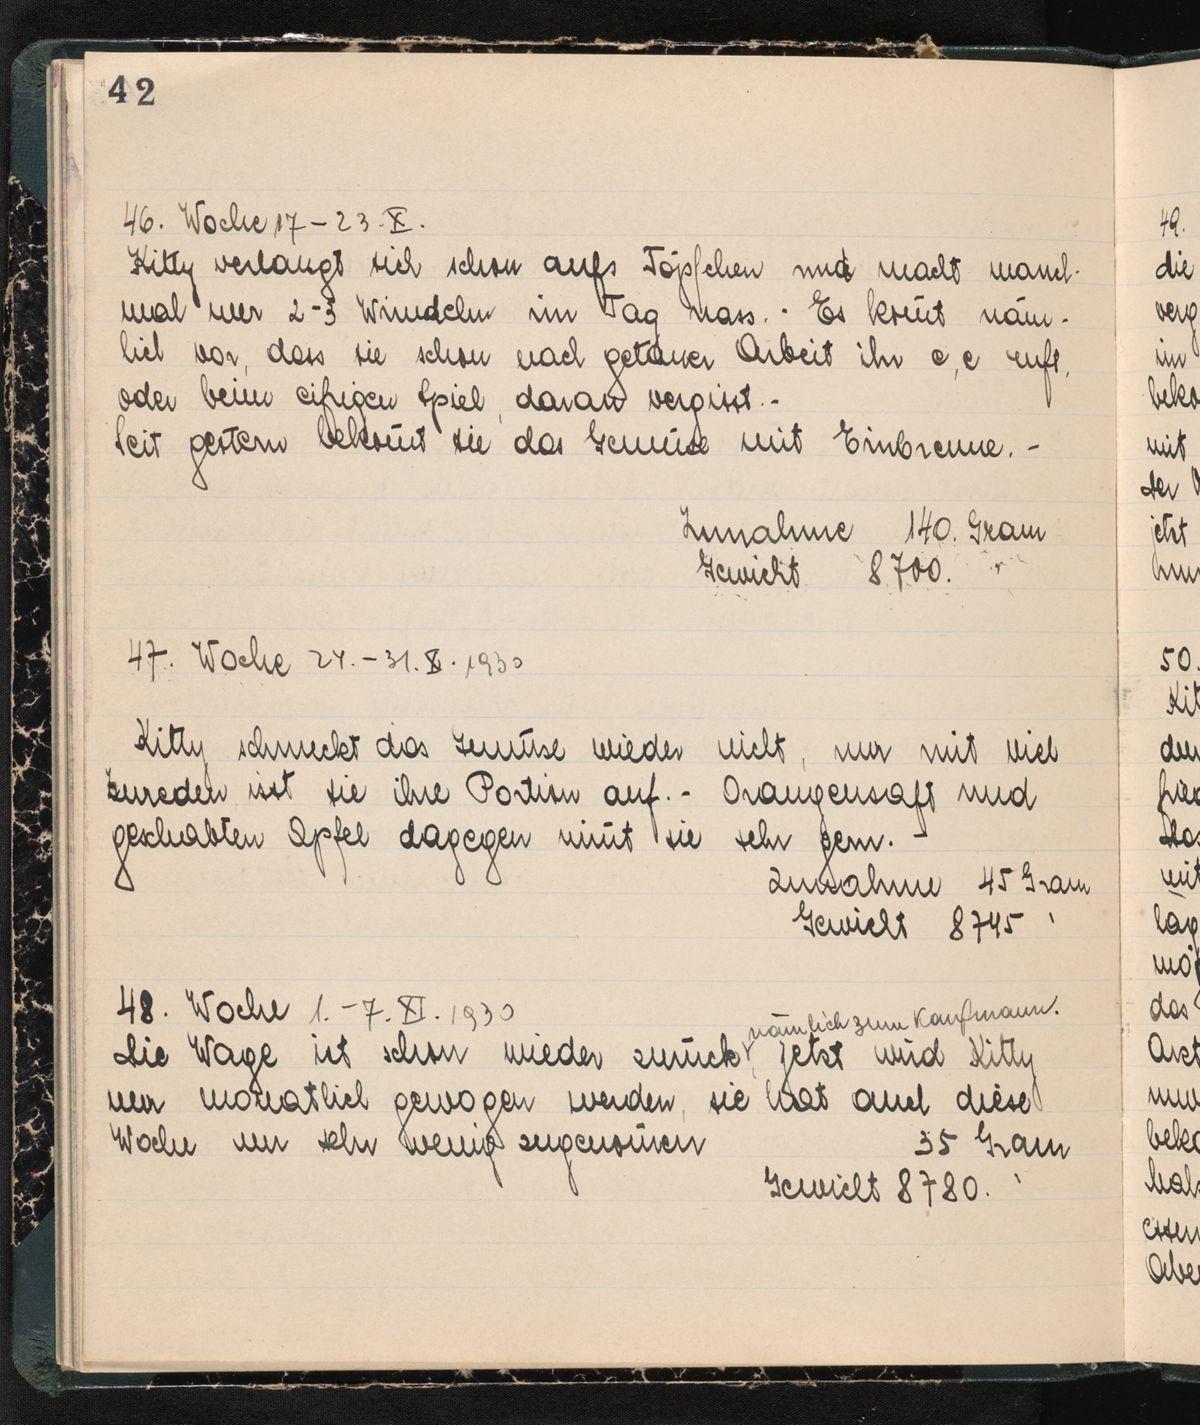 42
46. Woche 17 – 23. X.
Kitty verlangt sich schon aufs Töpfchen und macht manch-
mal nur 2-3 Windeln im Tag nass. - Es kom̄t näm-
lich vor, dass sie schon nach getaner Arbeit ihr e, e ruft,
oder beim eifrigen Spiel, daran vergisst. -
Seit gestern bekom̄t sie das Gemüse mit Einbrenne. -
Zunahme 140. Gram
Gewicht 8700. "
47. Woche 24. – 31. X. 1930
Kitty schmeckt das Gemüse wieder nicht, nur mit viel
zureden isst sie ihre Portion auf. - Orangensaft und
geschabten Apfel dagegen nim̄t sie sehr gern.
Zunahme 45 Gram
Gewicht 8745 '
48. Woche 1. – 7. XI. 1930
nämlich zum Kaufmann.
Die Wage ist schon wieder zurück, jetzt wird Kitty
nur monatlich gewogen werden, sie hat auch diese
Woche nur sehr wenig zugenom̄en 35 Gram
Gewicht 8780. '
49.
die
verg
im
beko
mit
der
jetzt
50.
Kit
das
mit
das